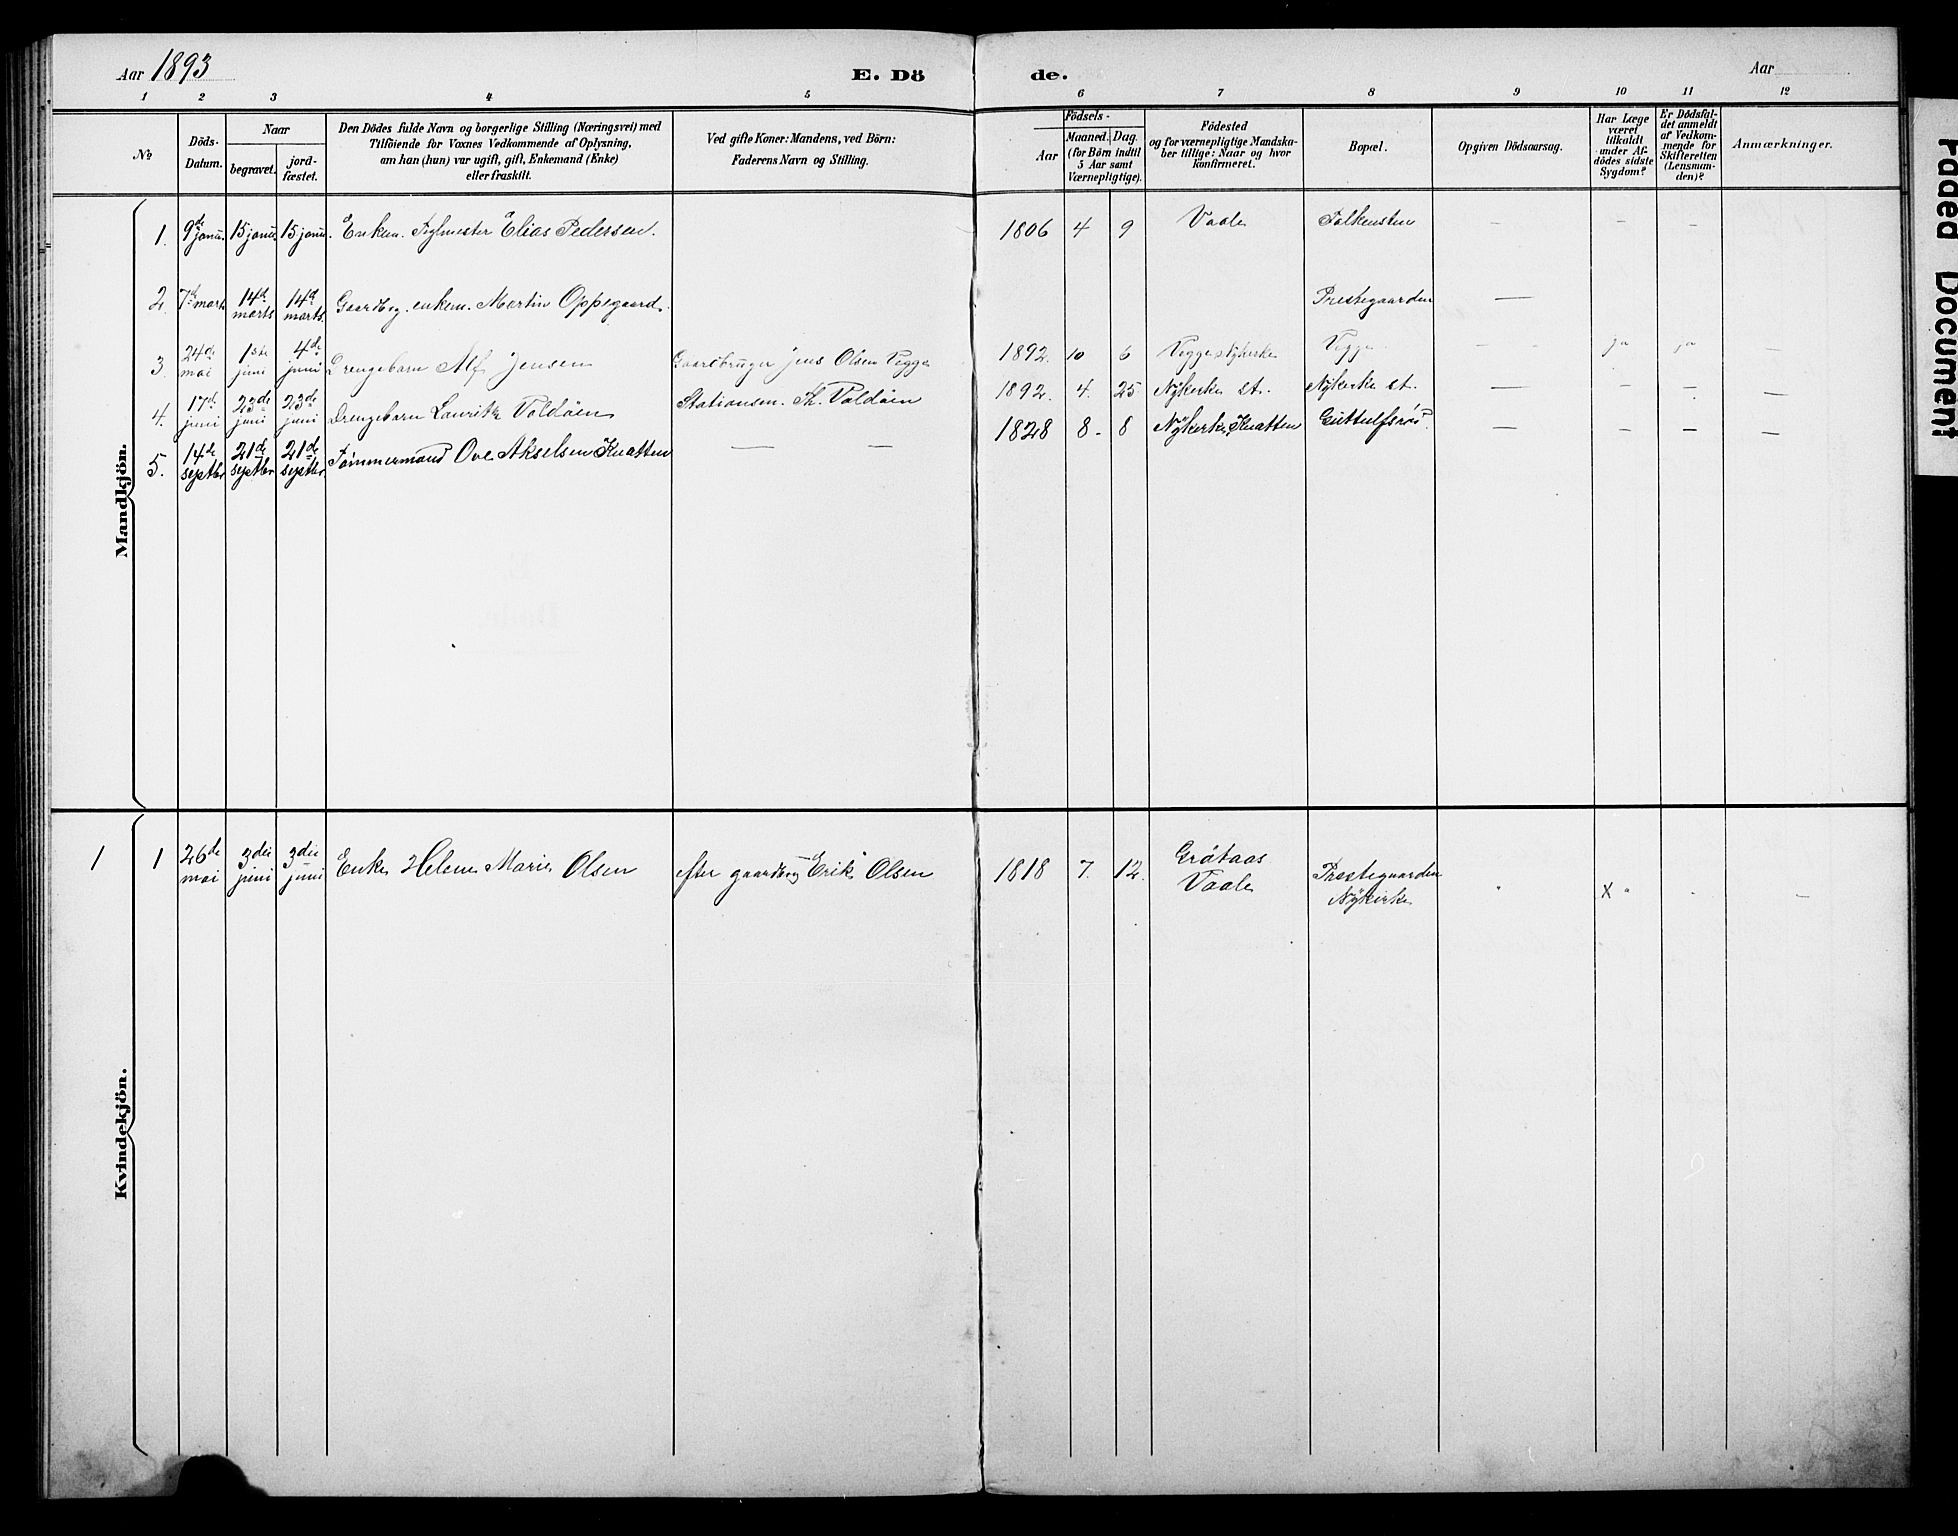 Aar 1893
E. Dö de.
Aar
1 2 3 4 5 6 7 8 9 10 11 12
No
Döds-Datum.
Naar
begravet.
jord-fæstet.
Den Dödes fulde Navn og borgerlige Stilling (Næringsvei) med
Tilföiende for Voxnes Vedkommende af Oplysning,
om han (hun) var ugift, gift, Enkemand (Enke)
eller fraskilt.
Ved gifte Koner: Mandens, ved Börn:
Faderens Navn og Stilling.
Födsels-
Aar
Maaned. Dag.
(for Börn indtil
5 Aar samt
Værnepligtige).
Födested
og for værnepligtige Mandska-
ber tillige: Naar og hvor
konfirmeret.
Bopæl.
Opgiven Dödsaarsag.
Har Læge
været
tilkaldt
under Af-
dödes sidste
Sygdom?
Er Dödsfal-
det anmeldt
af Vedkom-
mende for
Skifteretten
(Lensman-
den)?
Anmærkninger.
Mandkjön.
1. 9de janu. 15 janu. 15 janu. Enkem. Elias Pedersen. 1806 4 9 Vaale Falkensten - - -
2. 7d marts 14d marts 14d marts. Gaardbrg. enkem. Martin Oppegaard. Prestegaarden —
3. 24de mai 1ste juni 4de juni Drengebarn Alf Jensen Gaardbruger Jens Olsen Vegge 1892. 10 6 Vegge Nykirke Vegge - - ja ja —
4. 17d juni 23de juni 23de juni Drengebarn Lauritz Voldöen Stationsm. Th. Voldöen 1892. 4. 25 Nykirke st. Nykirke st. — - — —
5. 14de septbr 21de septbr 21de septbr. Tömmermand Ove Akselsen Knatten — — 1828 8- 8 Nykirke, Knatten Guttulfsröd — — — —
Kvindekjön.
1 1 26de mai 3die juni 3die juni Enke Helene Marie Olsen efter gaardbrg Erik Olsen 1818 7. 12. Gråtaas Vaale Prestegaarden Nykirke " X " . —
Faded Document